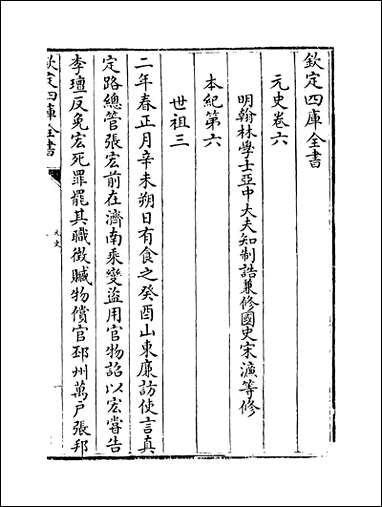 欽定四庫全書
元史卷六
明翰林學士亞中大夫知制誥兼修國史宋濂等修
本紀第六
世祖三
二年春正月辛未朔日有食之癸酉山東廉訪使言真
定路總管張宏前在濟南乘變盜用官物詔以宏嘗告
李璮反免宏死罪罷其職徴贓物償官邳州萬户張邦
欽定四庫全書
元史